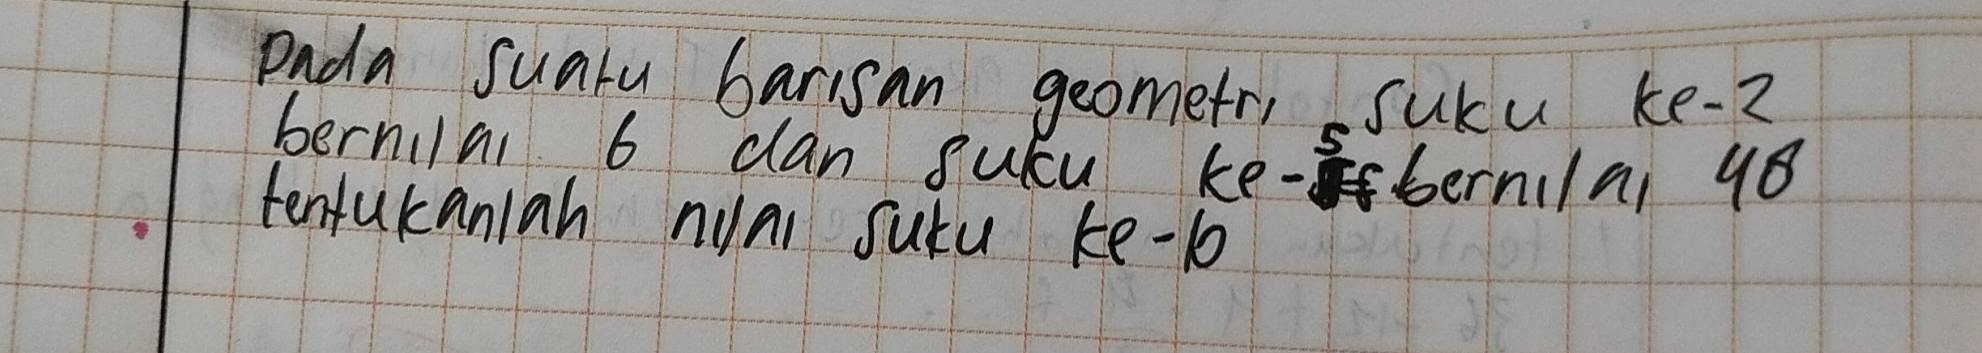 Pada suatu barisan geometri suku ke-2
bernilai 6 dan suku ke-5 bernilai 48
tentukanlah nilai suku ke-10